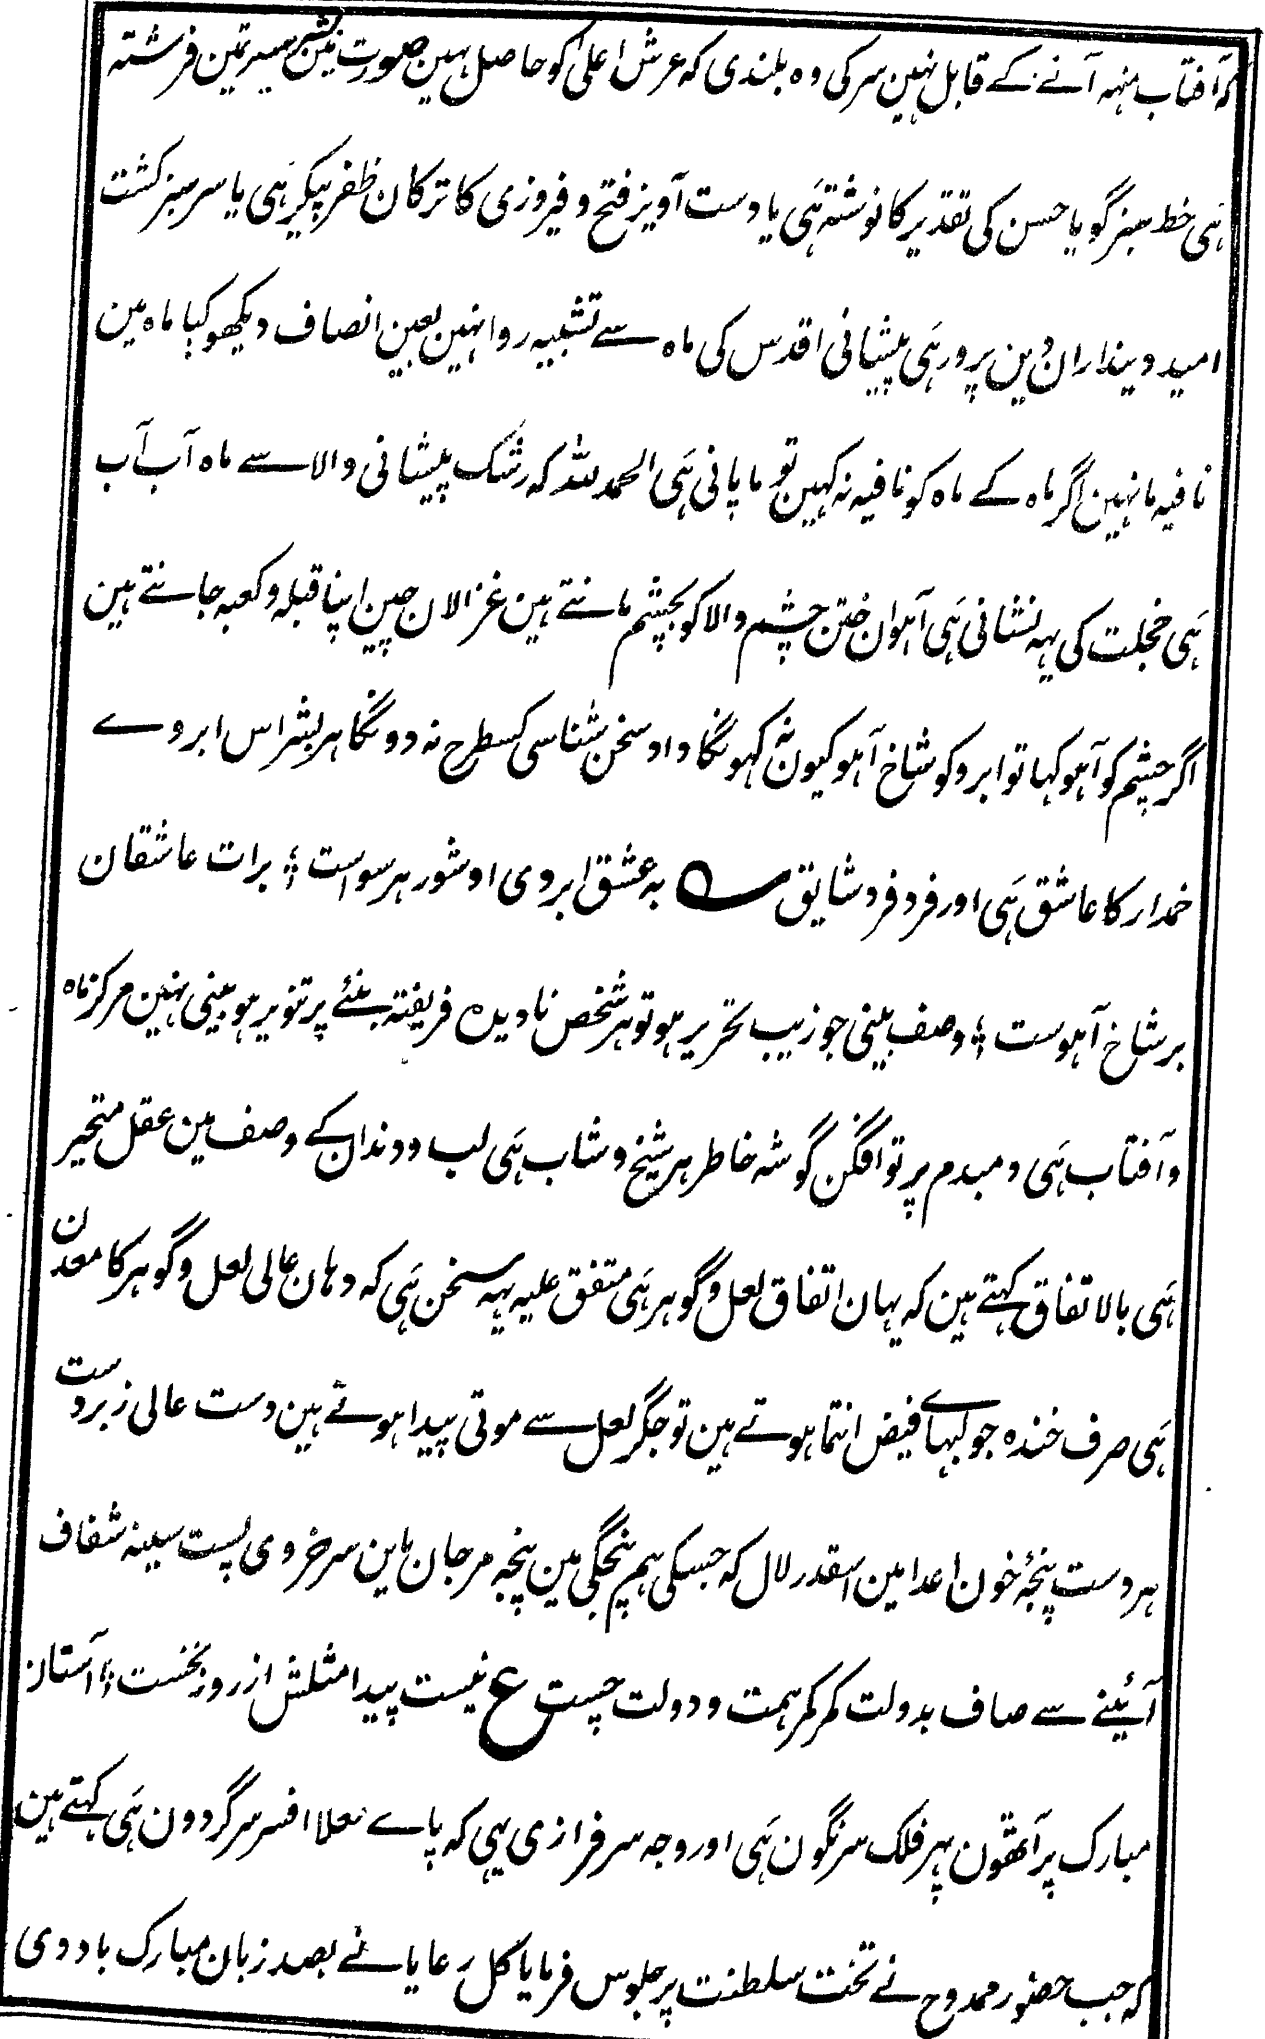 کہ آفتاب منہہ آنے کے قابل نہین سر کی وہ بلندی کہ عرش اعلی کو حاصل نہین صورت مین بشر سیرتمین فرشتہ
ہی خط سبز گویا حسن کی تقدیر کا نوشتہ ہی یا دست آویز فتح و فیروزی کا ترکان ظفر پیکر ہی یا سرسبز کشت
امید دینداران دین پرور ہی پیشانی اقدس کی ماہ سے تشبیہ روا نہین بعین انصاف دیکھو کیا ماہ مین
نافیہ ما نہین اگر ماہ کے ماہ کو نافیہ نہ کہین تو ما پانی ہی الحمد للہ کہ رشک پیشانی والا سے ماہ آب آب
ہی خجلت کی یہہ نشانی ہی آہوان ختن چشم والا کو بچشم مانتے ہین غزالان چین اپنا قبلہ و کعبہ جانتے ہین
اگر چشم کو آہو کہا تو ابرو کو شاخ آہو کیون نہ کہونگا داد سخن شناسی کسطرح نہ دونگا ہر بشر اس ابروے
خمدار کا عاشق ہی اور فرد فرد شایق ؎ بہ عشق ابروی او شور ہر سو است ؛ برات عاشقان
بر شاخ آہوست ؛ وصف بینی جو زیب تحریر ہو تو ہر شخص نادیدہ فریفتہ بنئے پر تنویر ہو بینی نہین مرکز ماہ
و آفتاب ہی دمبدم پرتو افگن گوشہ خاطر ہر شیخ و شاب ہی لب و دندان کے وصف مین عقل متحیر
ہی بالاتفاق کہتے ہین کہ یہان اتفاق لعل و گوہر ہی متفق علیہ یہہ سخن ہی کہ دہان عالی لعل و گوہر کا معدن
ہی صرف خندہ جو لبہاے فیض انتما ہوتے ہین تو جگر لعل سے موتی پیدا ہوتے ہین دست عالی زبردست
ہر دست پنجۂ خون اعدا مین اسقدر لال کہ جسکی ہم پنجگی مین پنجہ مرجان باین سرخروی پست سینہ شفاف
آئینے سے صاف بدولت کمر کمر ہمت و دولت چست ع نیست پیدا مثلش از روز نخست ؛ آستانہ
مبارک پر آٹھون پہر فلک سرنگون ہی اور وجہ سرفرازی یہی کہ پاے معلا افسر سر گردون ہی کہتے ہین
کہ جب حضور ممدوح نے تخت سلطنت پر جلوس فرمایا کل رعایا نے بصد زبان مبارک باد دی